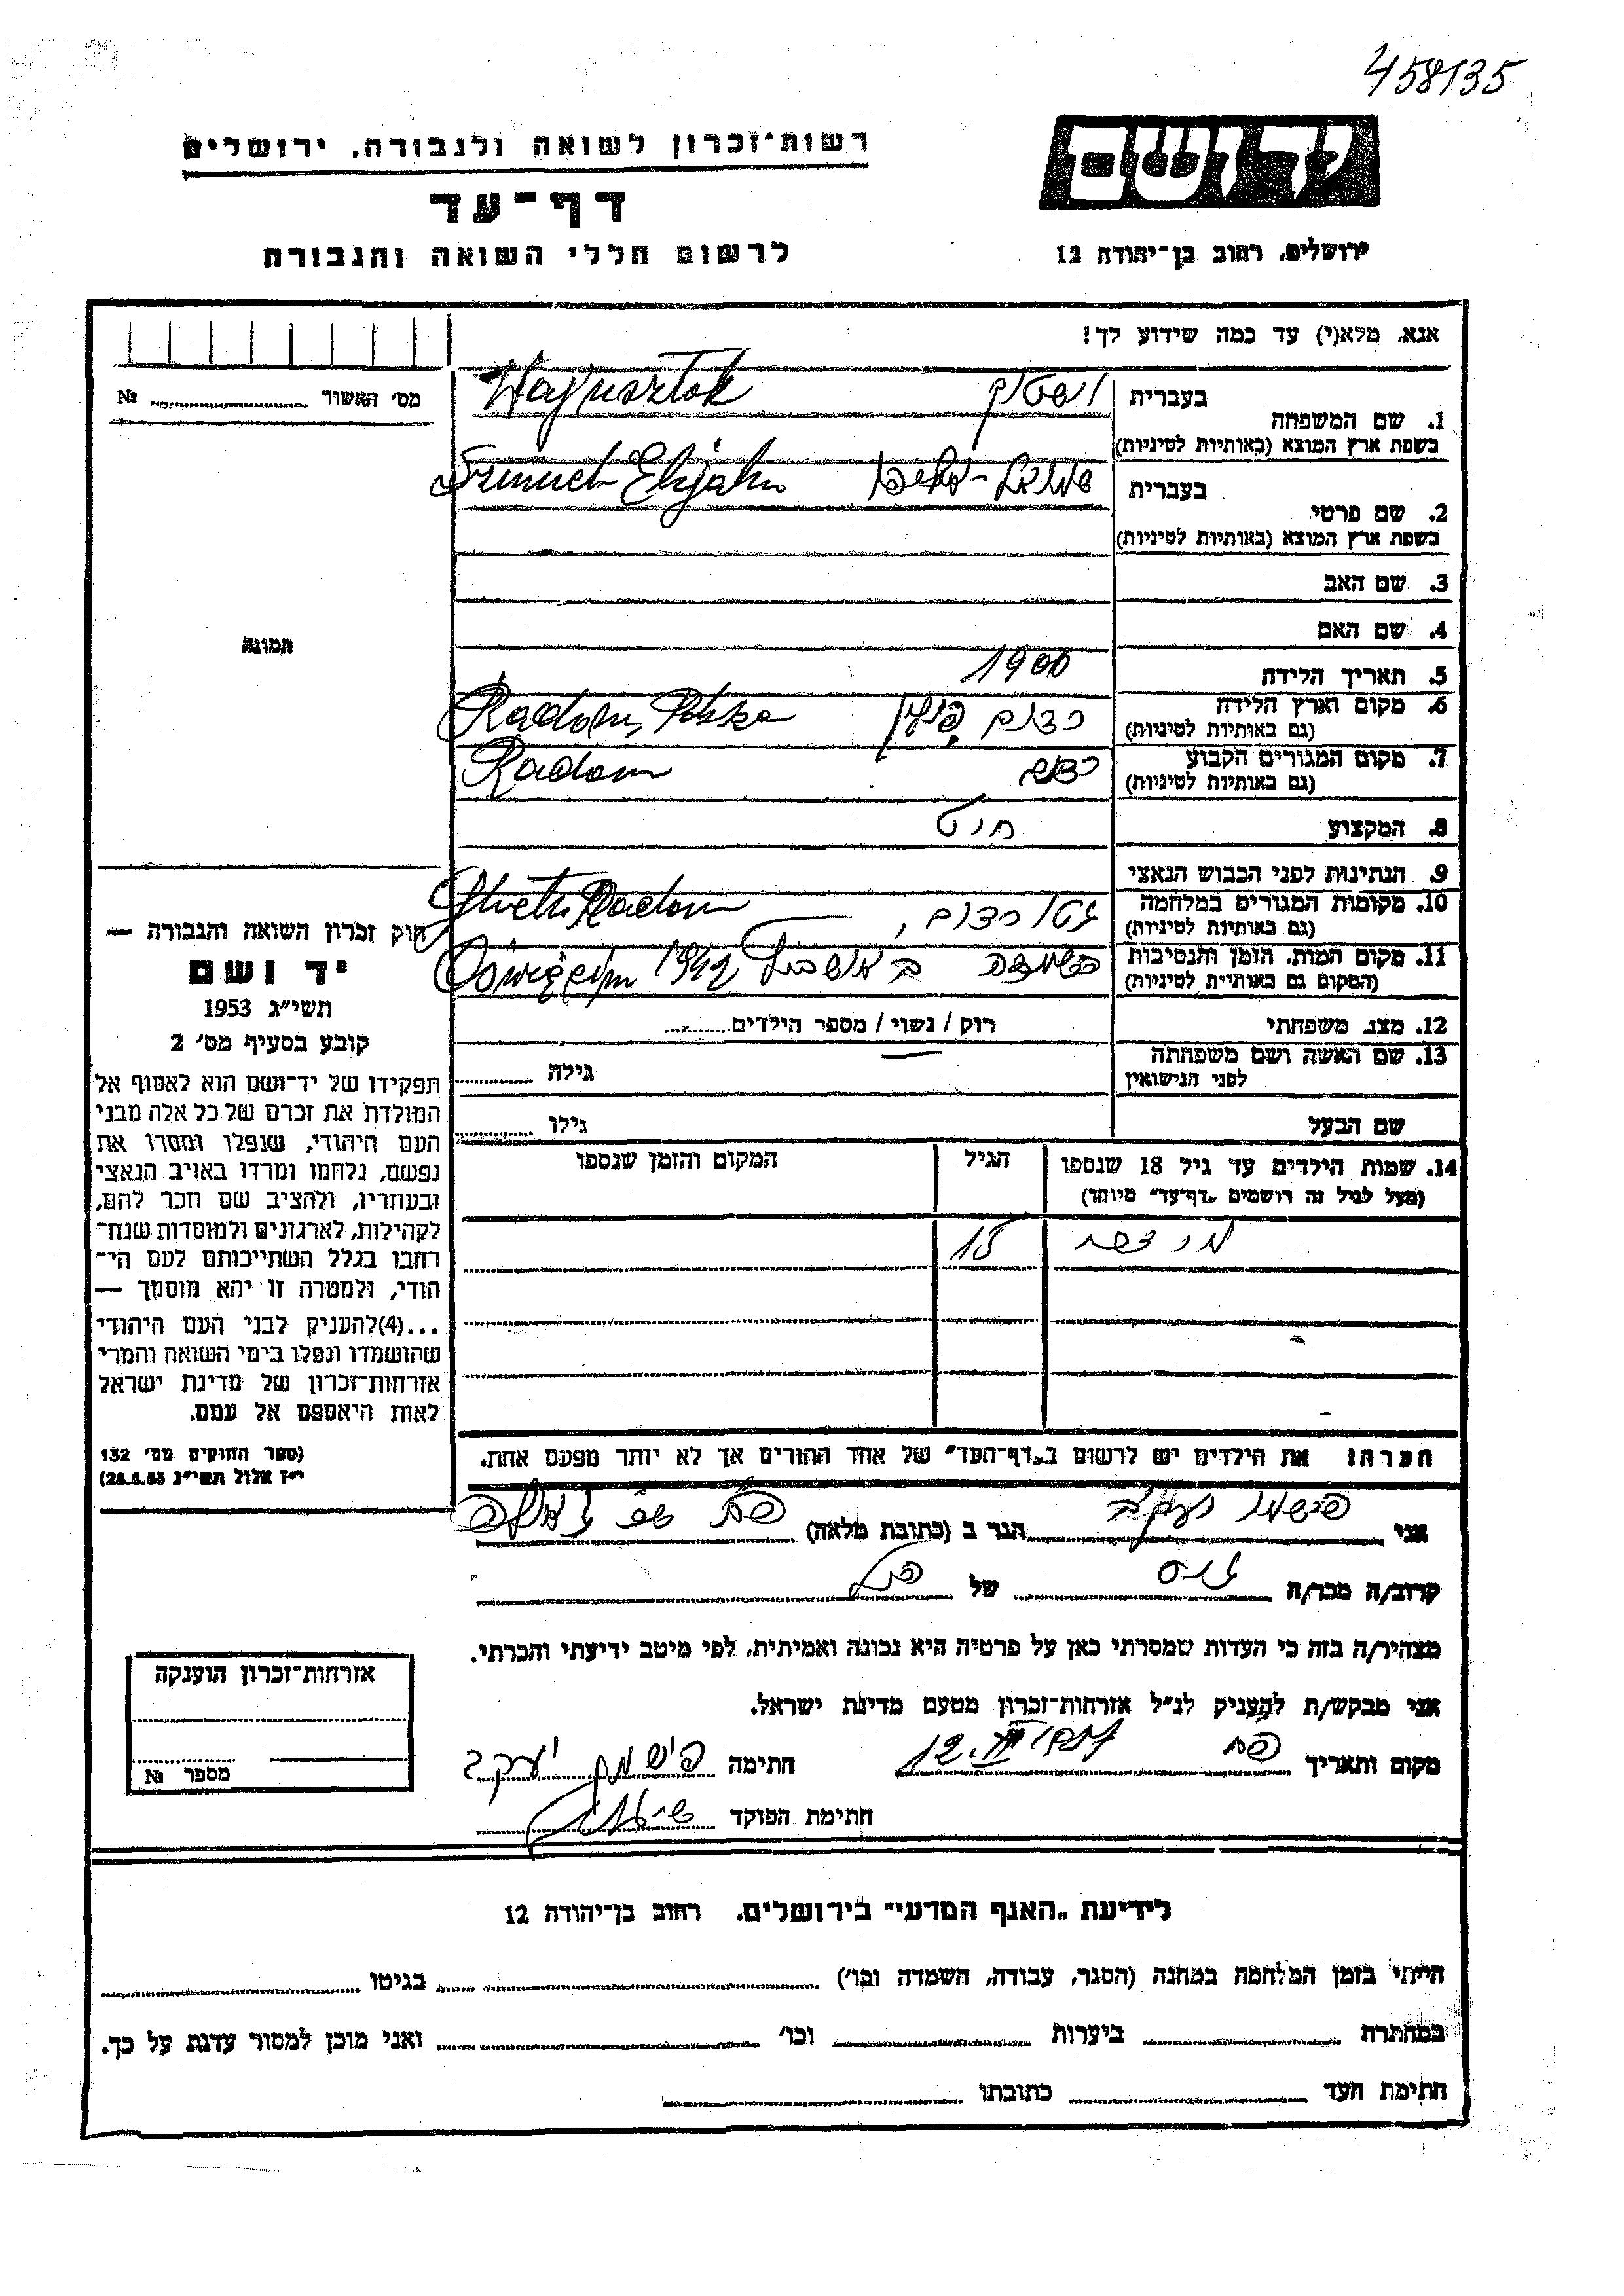 458135
יד ושם
רשות־זכרון לשואה ולגבורה, ירושלים
דף־עד
לרשום חללי השואה והגבורה
ירושלים, רחוב בן־יהודה 12
אנא, מלא(י) עד כמה שידוע לך!
מס׳ האשור № 
תמונה
1. שם המשפחה
בעברית
בשפת ארץ המוצא (באותיות לטיניות)
2. שם פרטי
בעברית שמואל-אליהו
בשפת ארץ המוצא (באותיות לטיניות) Elijahu
3. שם האב
4. שם האם
5. תאריך הלידה 1900
6. מקום וארץ הלידה רדום, פולין Radom, Polska
(גם באותיות לטיניות)
7. מקום המגורים הקבוע רדום Radom
(גם באותיות לטיניות)
8. המקצוע חיט
9. הנתינות לפני הכבוש הנאצי
10. מקומות המגורים במלחמה גטו רדום, Ghetto Radom
(גם באותיות לטיניות)
11. מקום המות, הזמן והנסיבות בהשמדה באושביץ 1942 Oświęcim
(המקום גם באותיות לטיניות)
12. מצב משפחתי רוק / נשוי / מספר הילדים
13. שם האשה ושם משפחתה
לפני הנישואין
גילה
שם הבעל גילו
14. שמות הילדים עד גיל 18 שנספו
(מעל לגיל זה רושמים „דף־עד" מיוחד)
הגיל
המקום והזמן שנספו
18
הערה! את הילדים יש לרשום ב„דף־העד" של אחד ההורים אך לא יותר מפעם אחת.
חוק זכרון השואה והגבורה —
יד ושם
תשי״ג 1953
קובע בסעיף מס׳ 2
תפקידו של יד־ושם הוא לאסוף אל
המולדת את זכרם של כל אלה מבני
העם היהודי, שנפלו ומסרו את
נפשם, נלחמו ומרדו באויב הנאצי
ובעוזריו, ולהציב שם וזכר להם,
לקהילות, לארגונים ולמוסדות שנח־
רחבו בגלל השתייכותם לעם הי־
הודי, ולמטרה זו יהא מוסמך —
...(4)להעניק לבני העם היהודי
שהושמדו ונפלו בימי השואה והמרי
אזרחות־זכרון של מדינת ישראל
לאות היאספם אל עמם.
(ספר החוקים מס׳ 132
י״ז אלול תשי״ג 28.8.53)
אני פישמן יעקב הגר ב (כתובת מלאה)
קרוב/ה מכר/ה גיס של
מצהיר/ה בזה כי העדות שמסרתי כאן על פרטיה היא נכונה ואמיתית, לפי מיטב ידיעתי והכרתי.
אני מבקש/ת להעניק לנ״ל אזרחות־זכרון מטעם מדינת ישראל.
מקום ותאריך חתימה פישמן יעקב
חתימת הפוקד
אזרחות־זכרון הוענקה
מספר №
לידיעת „האגף המדעי" בירושלים, רחוב בן־יהודה 12
הייתי בזמן המלחמה במחנה (הסגר, עבודה, השמדה וכו׳) בגיטו
במחתרת ביערות וכו׳ ואני מוכן למסור עדות על כך.
חתימת העד כתובתו